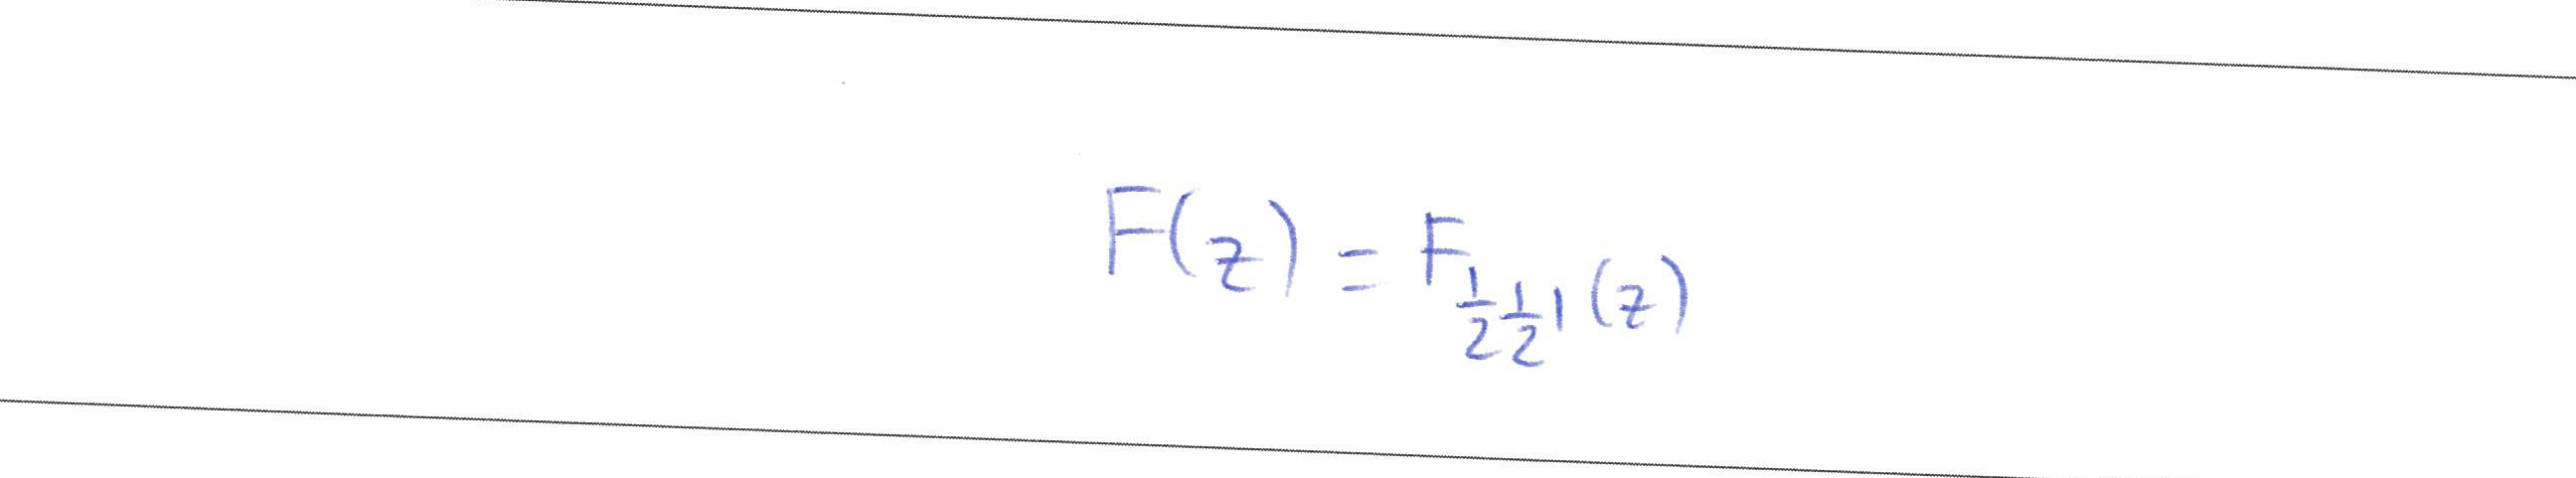 F(z) = F_{\frac{1}{2}\frac{1}{2}1}(z)